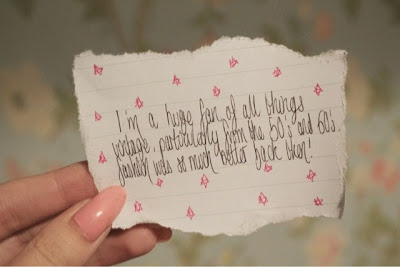 I'm a huge fan of all things
vintage, particularly from the 50's and 60's.
fashion was so much better back then!